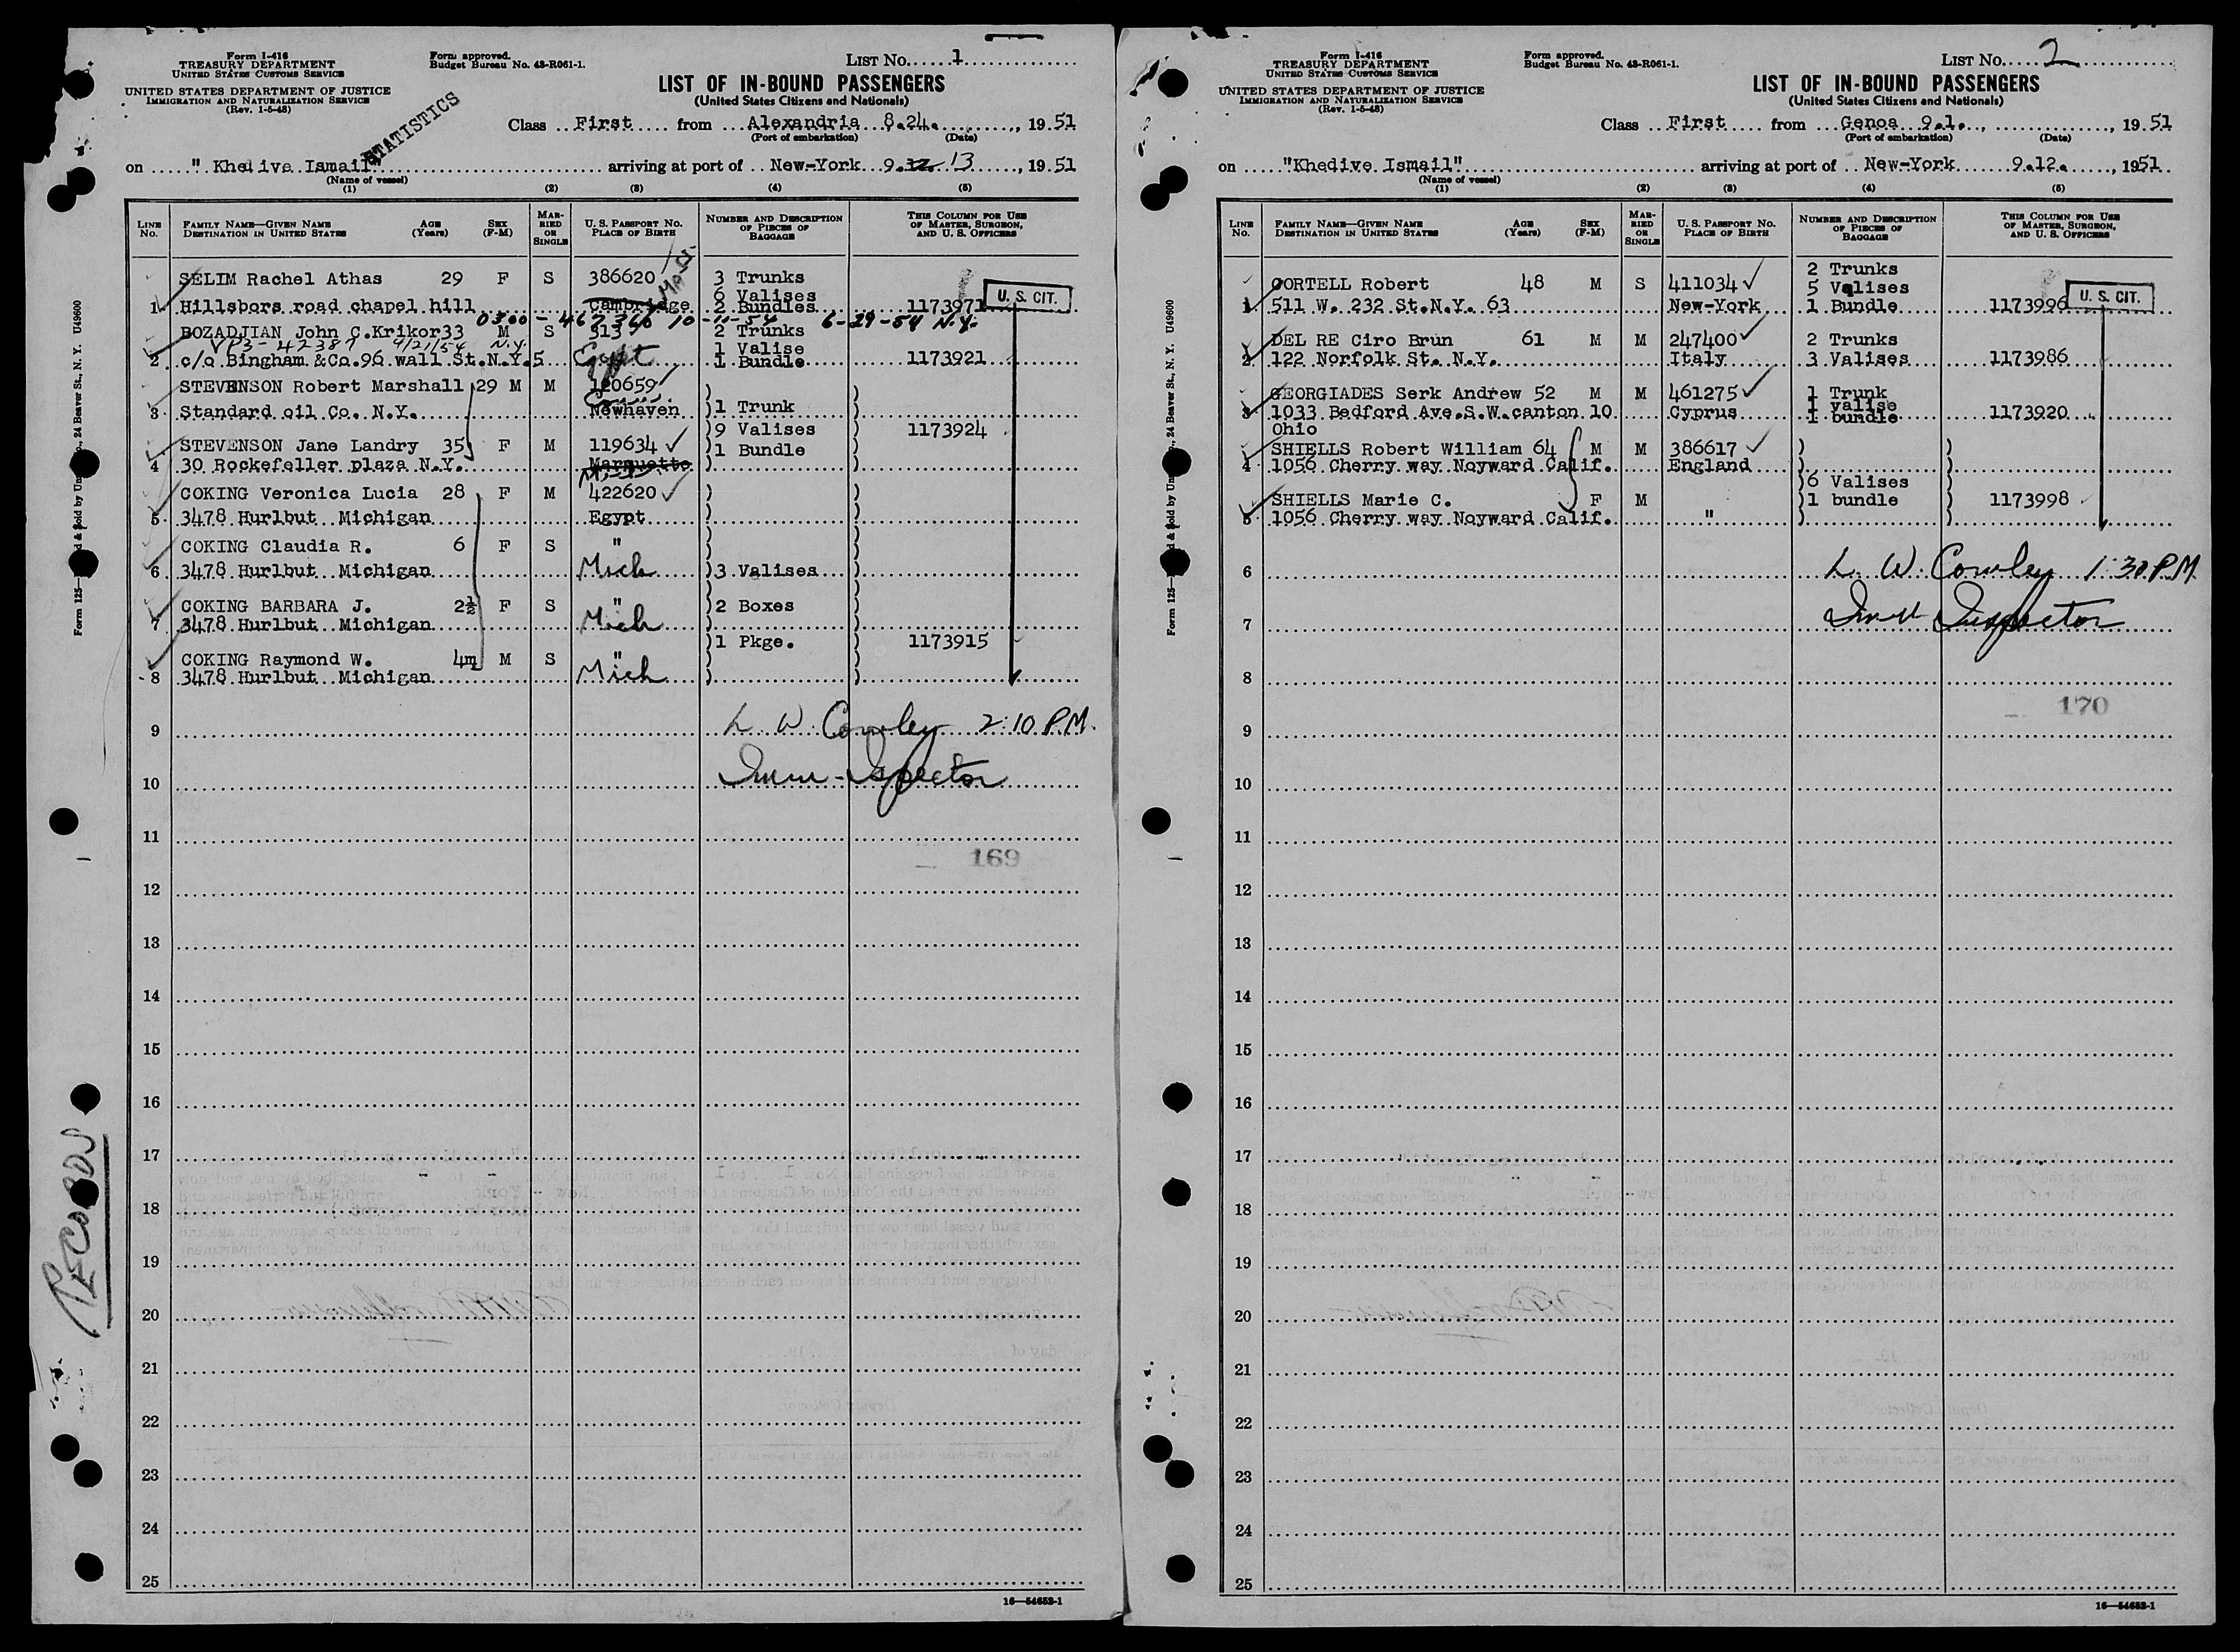 Form I-416
TREASURY DEPARTMENT
UNITED STATES CUSTOMS SERVICE
UNITED STATES DEPARTMENT OF JUSTICE
IMMIGRATION AND NATURALIZATION SERVICE
(Rev. 1-5-48)
Form approved.
Budget Bureau No. 43-R061-1.
STATISTICS
LIST No. 1
LIST OF IN-BOUND PASSENGERS
(United States Citizens and Nationals)
Class First from Alexandria 8.24., 1951
(Port of embarkation) (Date)
on " Khedive Ismail" arriving at port of New-York 9. 13, 1951
(Name of vessel)
(1) (2) (3) (4) (5)
LINE No. FAMILY NAME—GIVEN NAME DESTINATION IN UNITED STATES AGE (Years) SEX (F-M) MARRIED OR SINGLE U. S. PASSPORT No. PLACE OF BIRTH NUMBER AND DESCRIPTION OF PIECES OF BAGGAGE THIS COLUMN FOR USE OF MASTER, SURGEON, AND U. S. OFFICERS
SELIM Rachel Athas 29 F S 386620 Mass 3 Trunks
6 Valises
1 Hillsbors road chapel hill Cambridge 2 Bundles 1173971 U. S. CIT.
0300-462366 10-11-54 6-29-54 N.Y.
BOZADJIAN John C.Krikor33 M S 313 2 Trunks
VP3-42389 9/21/54 N.Y.
1 Valise
2 c/o Bingham &Co.96 wall St.N.Y.5 Egypt 1 Bundle 1173921
STEVENSON Robert Marshall 29 M M 120659
Conn.
3 Standard oil Co. N.Y. Newhaven )1 Trunk
)9 Valises 1173924
STEVENSON Jane Landry 35 F M 119634 )1 Bundle
4 30 Rockefeller plaza N.Y. Marquette
COKING Veronica Lucia 28 F M 422620
5 3478 Hurlbut Michigan Egypt
COKING Claudia R. 6 F S "
6 3478 Hurlbut Michigan Mich )3 Valises
COKING BARBARA J. 2½ F S " )2 Boxes
7 3478 Hurlbut Michigan Mich
)1 Pkge. 1173915
COKING Raymond W. 4m M S "
8 3478 Hurlbut Michigan Mich
9 L. W. Cowley 2:10 P.M.
10 Imm-Ispector
11
169
12
13
14
15
16
17
18
19
20
21
22
23
24
25
16—54652-1
RECORDS
24 Beaver St., N. Y. U49600
Form 125—
Form I-416
TREASURY DEPARTMENT
UNITED STATES CUSTOMS SERVICE
UNITED STATES DEPARTMENT OF JUSTICE
IMMIGRATION AND NATURALIZATION SERVICE
(Rev. 1-5-48)
Form approved.
Budget Bureau No. 43-R061-1.
LIST No. 2
LIST OF IN-BOUND PASSENGERS
(United States Citizens and Nationals)
Class First from Genoa 9.1., 1951
(Port of embarkation) (Date)
on "Khedive Ismail" arriving at port of New-York 9.12., 1951
(Name of vessel)
(1) (2) (3) (4) (5)
LINE No. FAMILY NAME—GIVEN NAME DESTINATION IN UNITED STATES AGE (Years) SEX (F-M) MARRIED OR SINGLE U. S. PASSPORT No. PLACE OF BIRTH NUMBER AND DESCRIPTION OF PIECES OF BAGGAGE THIS COLUMN FOR USE OF MASTER, SURGEON, AND U. S. OFFICERS
2 Trunks
CORTELL Robert 48 M S 411034 5 Valises
1 511 W. 232 St.N.Y. 63 New-York 1 Bundle 1173996 U. S. CIT.
DEL RE Ciro Brun 61 M M 247400 2 Trunks
2 122 Norfolk St. N.Y. Italy 3 Valises 1173986
GEORGIADES Serk Andrew 52 M M 461275 1 Trunk
1 valise
3 1033 Bedford Ave.S.W.canton 10 Cyprus 1 bundle 1173920
Ohio
SHIELLS Robert William 64 M M 386617
4 1056 Cherry way Noyward Calif. England
)6 Valises
SHIELLS Marie C. F M )1 bundle 1173998
5 1056 Cherry way Noyward Calif. "
6 L. W. Cowley 1:30 P.M.
7 Immt Inspector
8
170
9
10
11
12
13
14
15
16
17
18
19
20
21
22
23
24
25
16—54652-1
24 Beaver St., N. Y. U49600
Form 125—